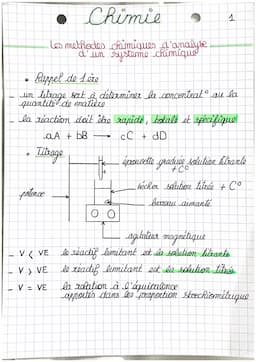 Chimie
1
Les méthodes chimiques d'analyse
d'un système chimique
• Rappel de 1ère
_ un titrage sert à déterminer la concentrat° ou la
quantité de matière
_ la réaction doit être rapide, totale et spécifique
aA + bB → cC + dD
• Titrage
éprouvette graduée solution titrante
+ C°
potence
bécher solution titrée + C°
barreau aimanté
agitateur magnétique
_ V < VE le réactif limitant est la solution titrante
_ V > VE le réactif limitant est la solution titrée
_ V = VE la relation à l'équivalence
apportés dans les proportion stoechiométrique